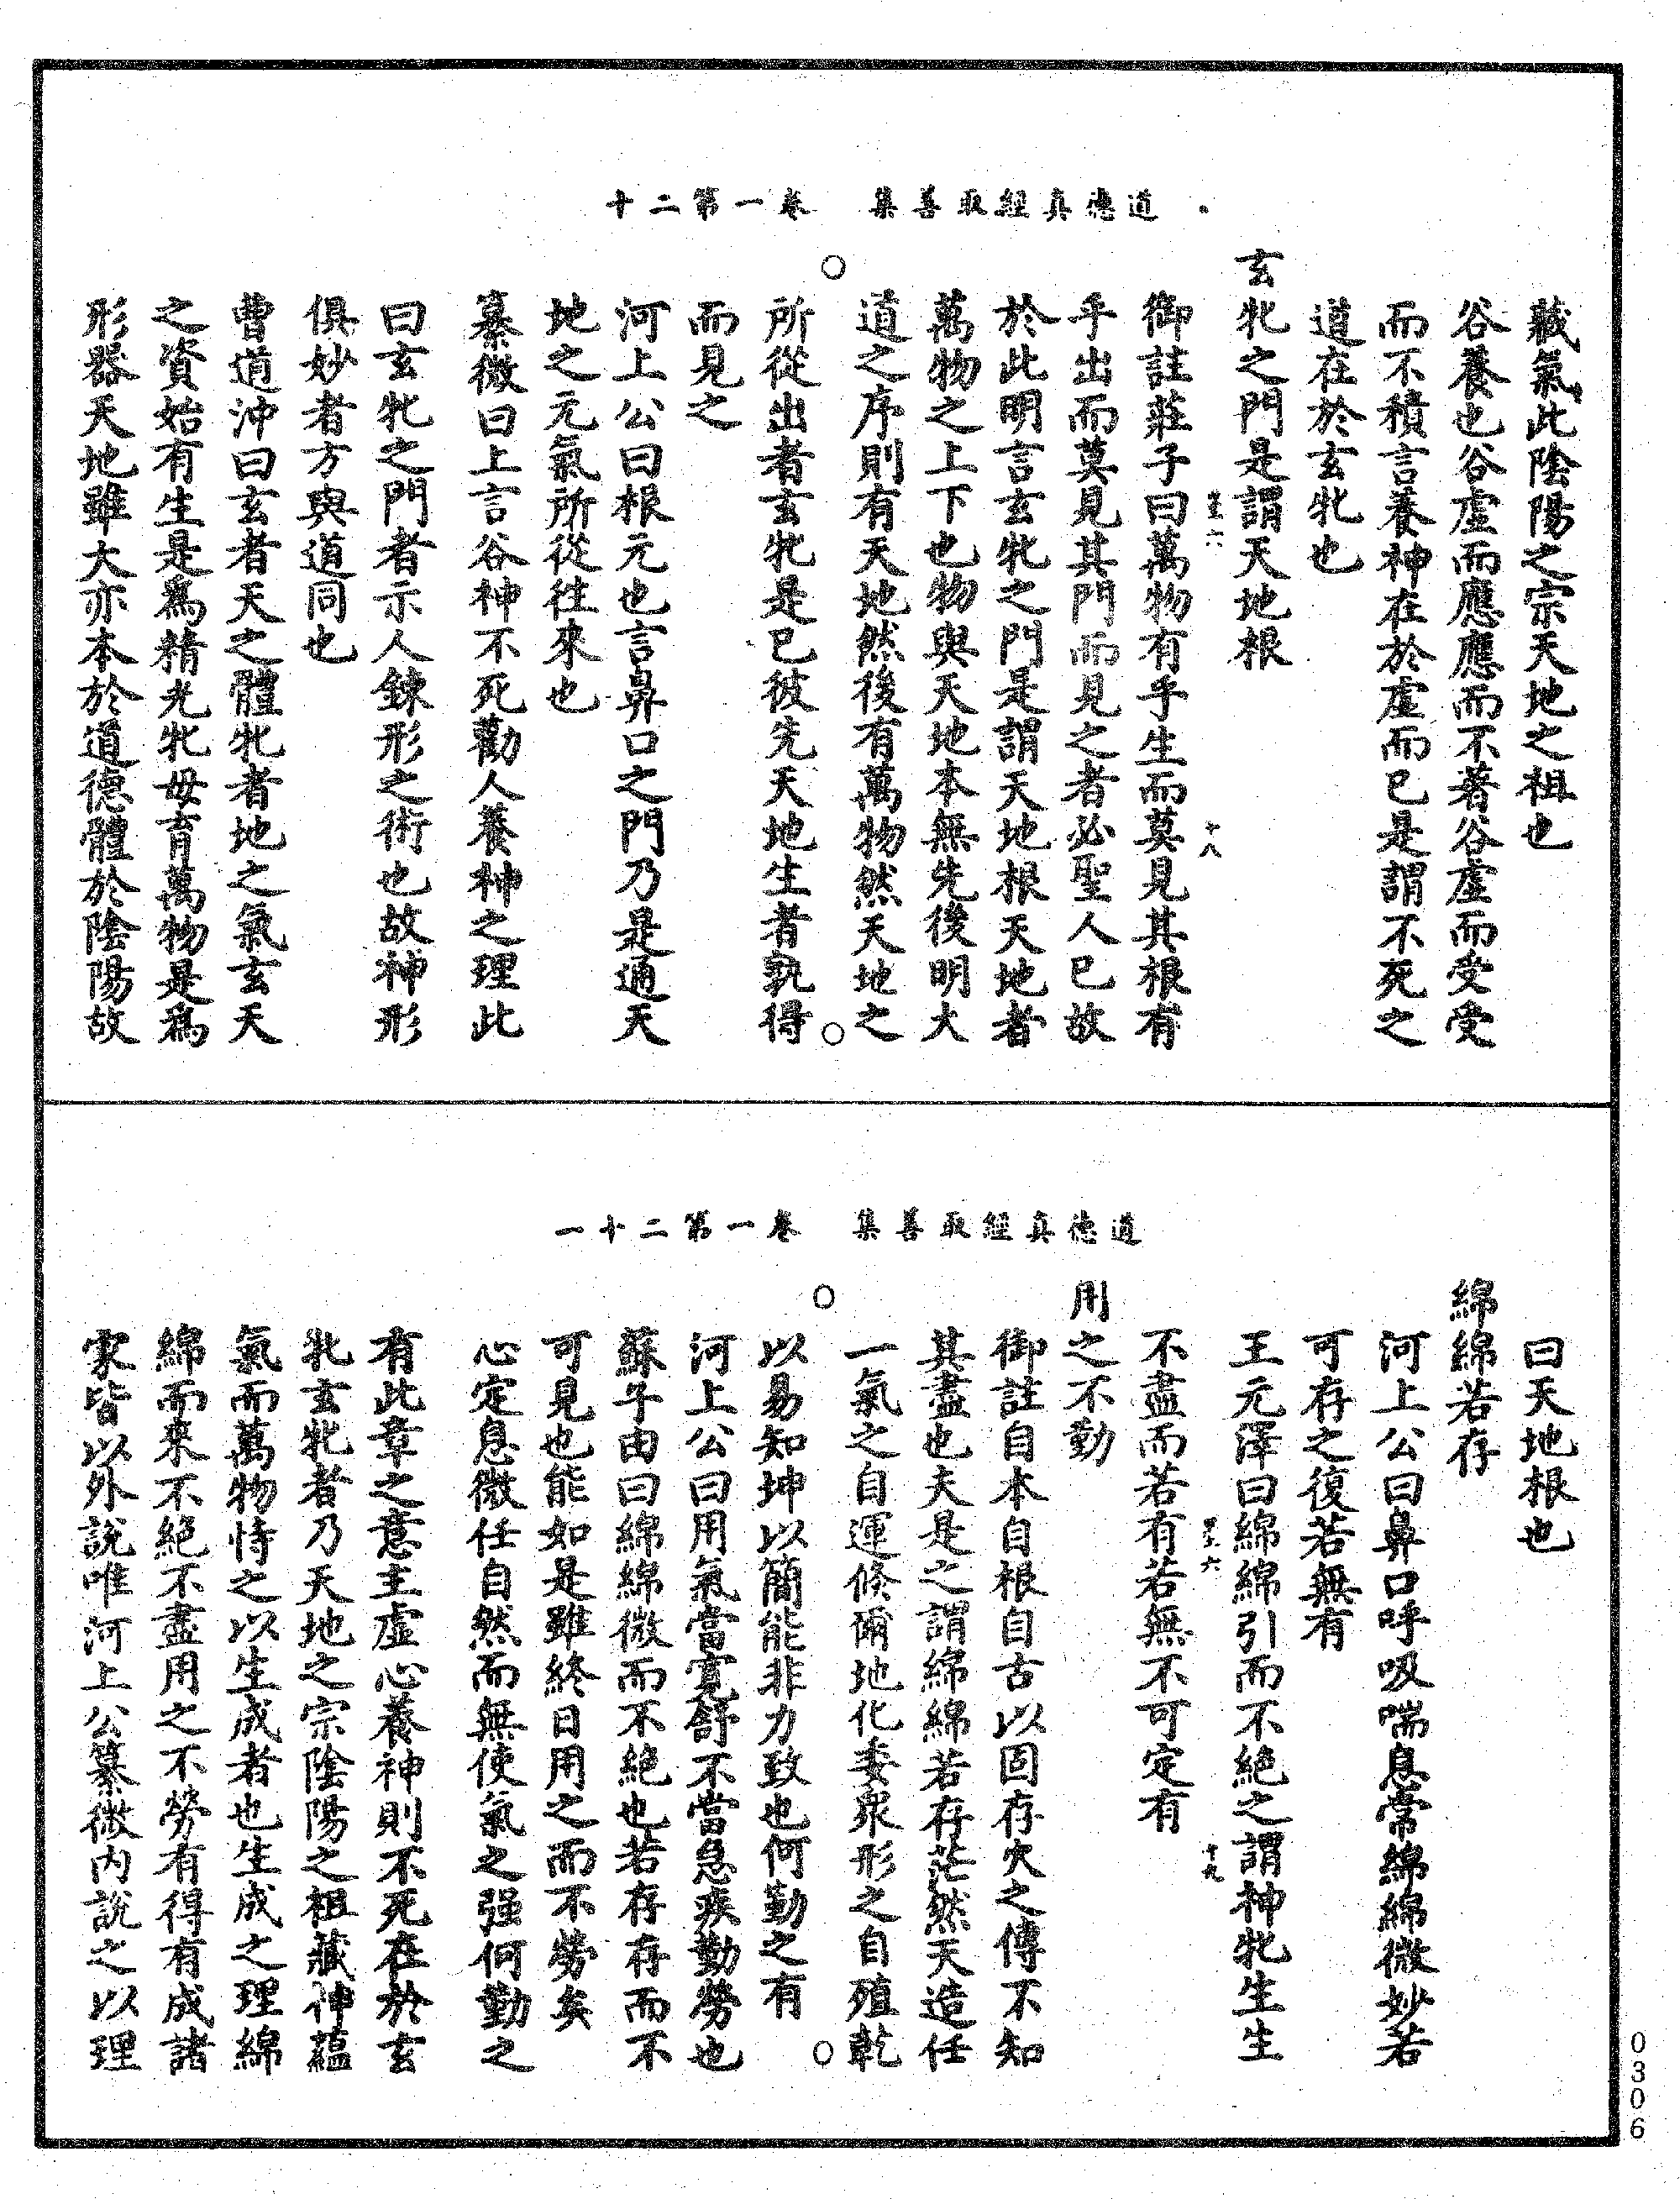 道德真經取善集　卷一第二十
藏氣此陰陽之宗天地之祖也
谷養也谷虛而應應而不著谷虛而受受
而不積言養神在於虛而已是謂不死之
道在於玄牝也
玄牝之門是謂天地根
十八
御註莊子曰萬物有乎生而莫見其根有
乎出而莫見其門而見之者必聖人已故
於此明言玄牝之門是謂天地根天地者
萬物之上下也物與天地本無先後明大
道之序則有天地然後有萬物然天地之
所從出者玄牝是已彼先天地生者孰得
而見之
河上公曰根元也言鼻口之門乃是通天
地之元氣所從往來也
纂微曰上言谷神不死勸人養神之理此
曰玄牝之門者示人鍊形之術也故神形
俱妙者方與道同也
曹道沖曰玄者天之體牝者地之氣玄天
之資始有生是爲精光牝母育萬物是爲
形器天地雖大亦本於道德體於陰陽故
道德真經取善集　卷一第二十一
曰天地根也
綿綿若存
河上公曰鼻口呼吸喘息常綿綿微妙若
可存之復若無有
王元澤曰綿綿引而不絕之謂神牝生生
十九
不盡而若有若無不可定有
用之不勤
御註自本自根自古以固存穴之傳不知
其盡也夫是之謂綿綿若存茫然天造任
一氣之自運倏爾地化委衆形之自殖乾
以易知坤以簡能非力致也何勤之有
河上公曰用氣當寬舒不當急疾勤勞也
蘇子由曰綿綿微而不絕也若存存而不
可見也能如是雖終日用之而不勞矣
心定息微任自然而無使氣之强何勤之
有此章之意主虛心養神則不死在於玄
牝玄牝者乃天地之宗陰陽之祖藏神蘊
氣而萬物恃之以生成者也生成之理綿
綿而來不絕不盡用之不勞有得有成諸
家皆以外說唯河上公纂微內說之以理
0306